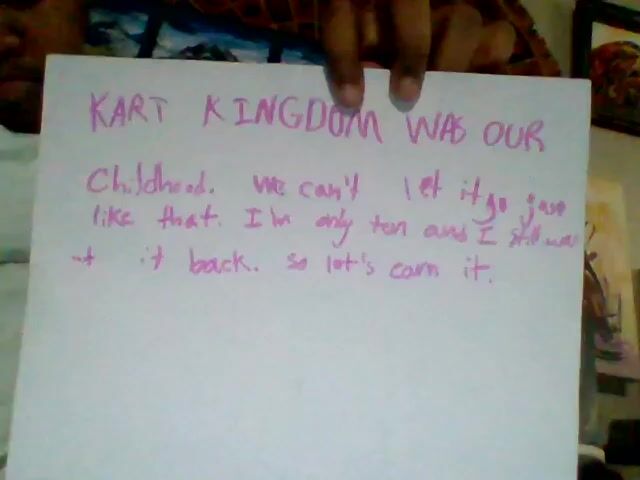 KART KINGDOM WAS OUR
Childhood. We can't let it go just
like that. I'm only ten and I still wan
-t it back. so let's earn it.